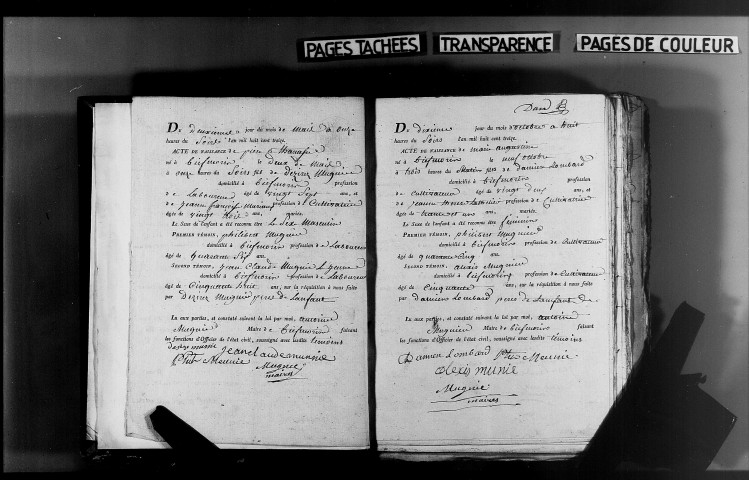 PAGES TACHÉES TRANSPARENCE PAGES DE COULEUR
Du Deuxieme jour du mois de mail à onze
heures du Soirs l'an mil huit cent trois.
ACTE DE NAISSANCE de pierre
né à biefmorin le deux de mail
à onze heures du Soirs fils de Mugnié
domicilié à biefmorin profession
de Laboureur âgé de vingt Sept ans, et
de jeanne françoise profession de Cultivatrice
âgée de vingt trois ans, mariés.
Le Sexe de l'enfant a été reconnu être le Sex Masculin
PREMIER TÉMOIN, philibert Mugnié
domicilié à biefmorin profession de Laboureur
âgé de quarante Six ans.
SECOND TÉMOIN, jean Claude Mugnié le jeune
domicilié à biefmorin profession de Laboureur
âgé de Cinquante huit ans, sur la réquisition à nous faite
par Mugnié pere de Lanfant
Lu aux parties, et constaté suivant la loi par moi, antoine
Mugnié Maire de biefmorin faisant
les fonctions d'Officier de l'état civil, soussigné avec lesdits témoins
jean claude munnie
Phil Meunié Mugnié
maires
Du dixieme jour du mois d'octobre à huit
heures du Soirs l'an mil huit cent trois.
ACTE DE NAISSANCE de marie augustine
né à biefmorin le neuf octobre
à trois heures du Matin fils de damien Lombard
domicilié à biefmorin profession
de Cultivateur âgé de vingt deux ans, et
de jeanne profession de Cultivatrice
âgée de trante et ans ans, mariés.
Le Sexe de l'enfant a été reconnu être féminin
PREMIER TÉMOIN, philibert Mugnié
domicilié à biefmorin profession de Cultivateur
âgé de quarante Cinq ans.
SECOND TÉMOIN, alexis Mugnier
domicilié à biefmorin profession de Cultivateur
âgé de Cinquante ans, sur la réquisition à nous faite
par damien Lombard pere de Lanfant
Lu aux parties, et constaté suivant la loi par moi, antoine
Mugnier Maire de biefmorin faisant
les fonctions d'Officier de l'état civil, soussigné avec lesdits témoins
Damien Lombard phil Meunié
alexis munie
Mugnié
maires